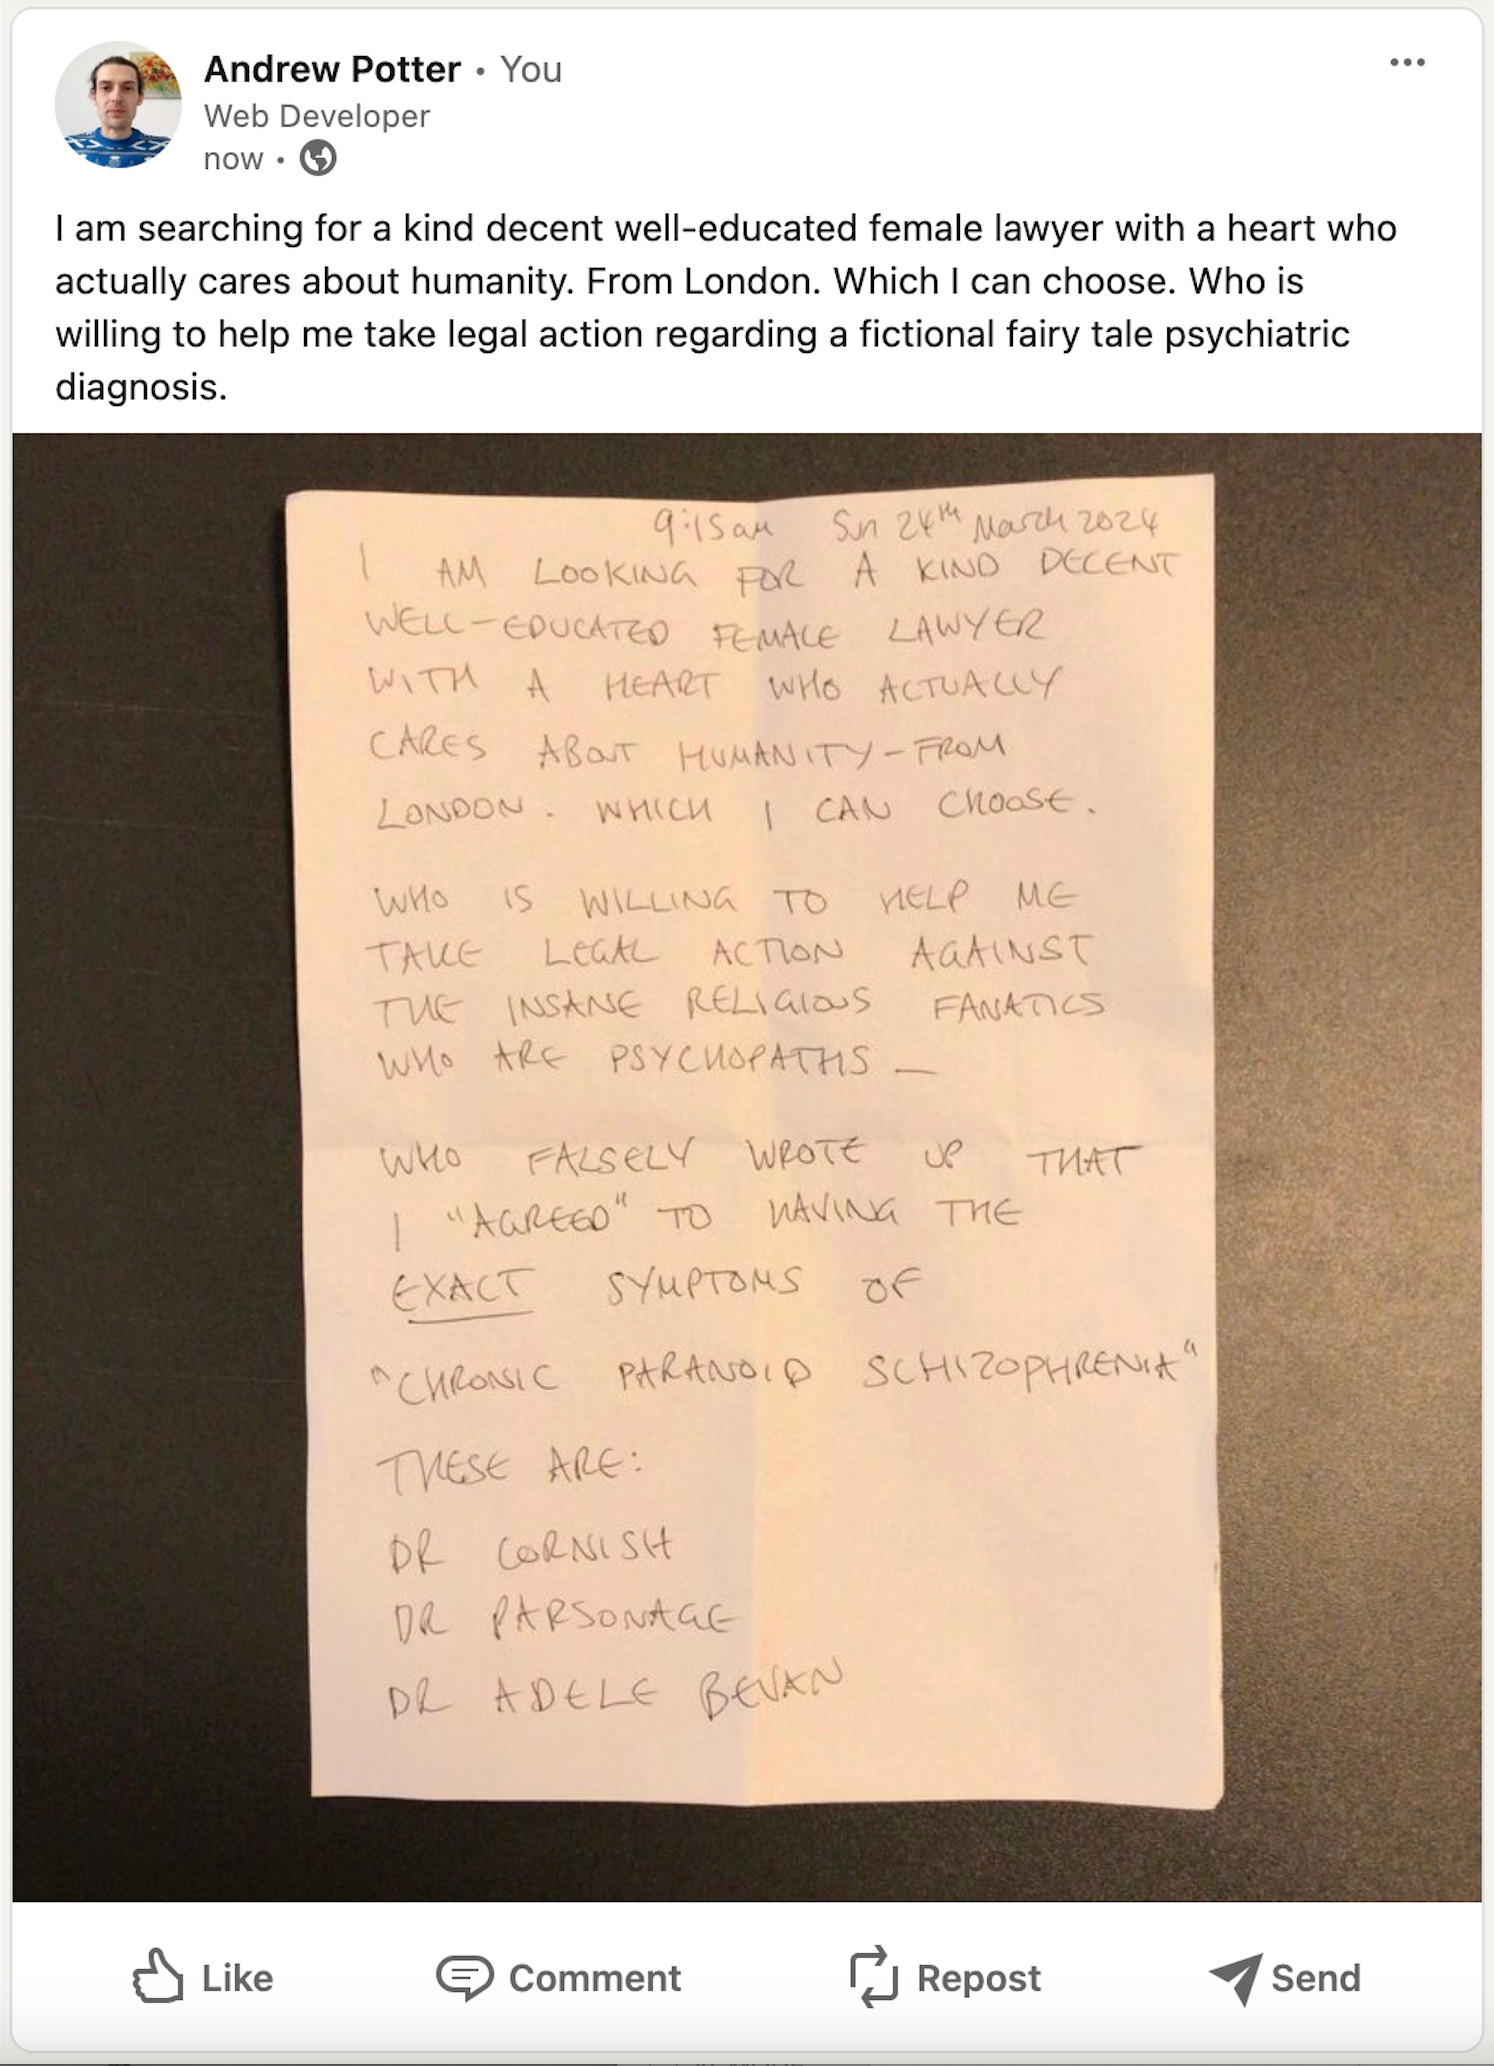 Andrew Potter • You
Web Developer
now •
I am searching for a kind decent well-educated female lawyer with a heart who
actually cares about humanity. From London. Which I can choose. Who is
willing to help me take legal action regarding a fictional fairy tale psychiatric
diagnosis.
9:15am Sun 24th March 2024
I AM LOOKING FOR A KIND DECENT
WELL-EDUCATED FEMALE LAWYER
WITH A HEART WHO ACTUALLY
CARES ABOUT HUMANITY-FROM
LONDON. WHICH I CAN CHOOSE.
WHO IS WILLING TO HELP ME
TAKE LEGAL ACTION AGAINST
THE INSANE RELIGIOUS FANATICS
WHO ARE PSYCHOPATHS _
WHO FALSELY WROTE UP THAT
I "AGREED" TO HAVING THE
EXACT SYMPTOMS OF
"CHRONIC PARANOID SCHIZOPHRENIA"
THESE ARE:
DR CORNISH
DR PARSONAGE
DR ADELE BEVAN
Like Comment Repost Send